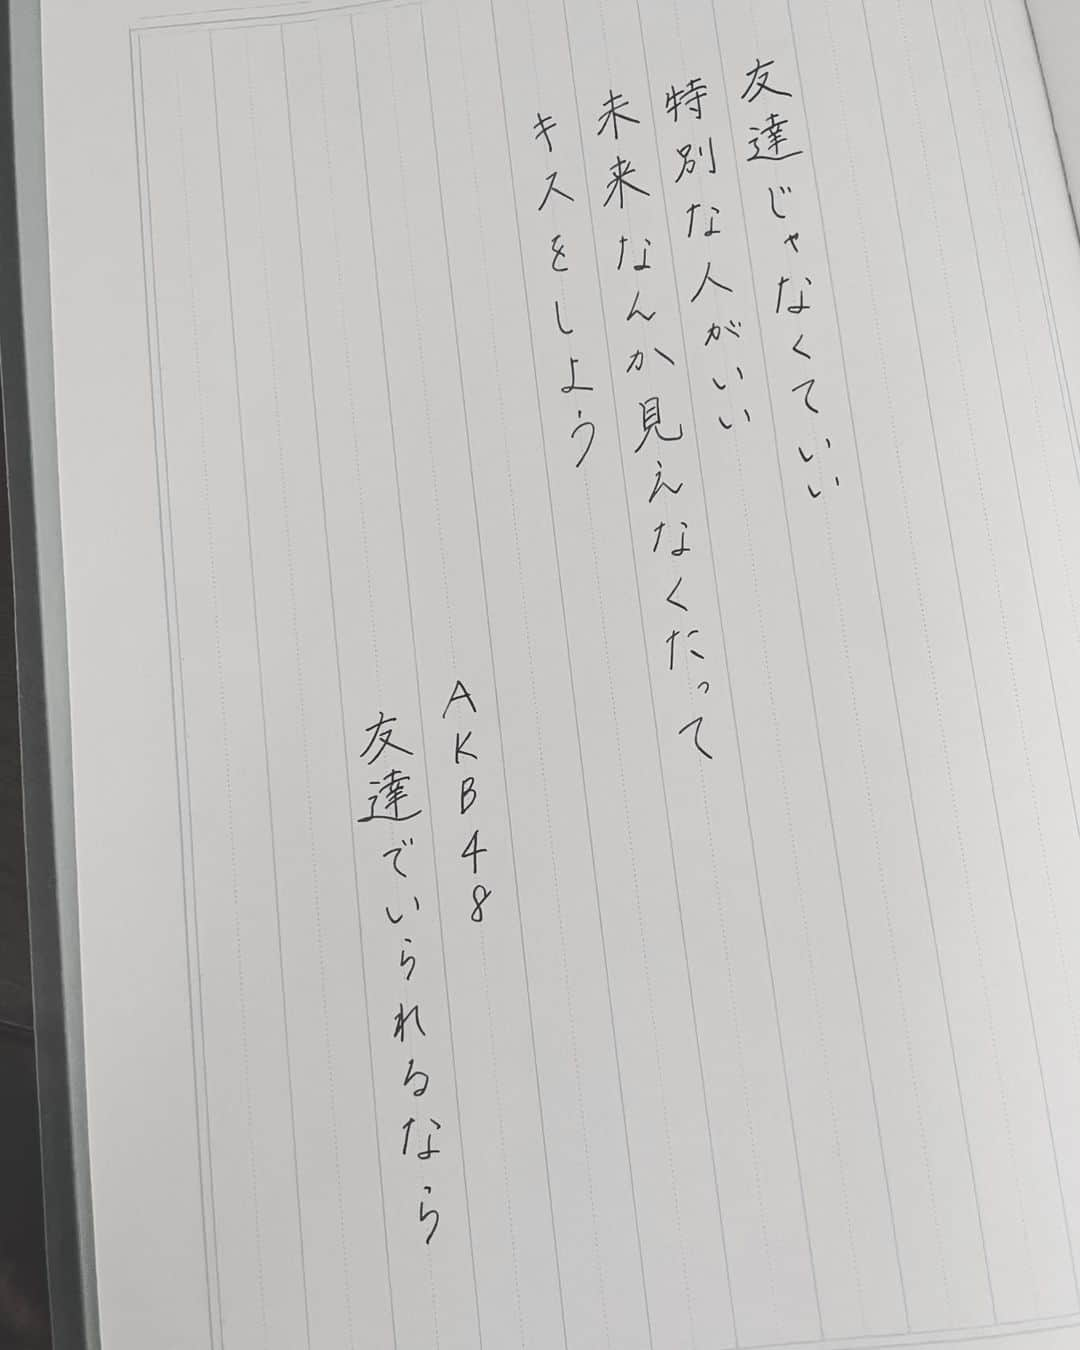 友達じゃなくていい
特別な人がいい
未来なんか見えなくたって
キスをしよう
AKB48
友達でいられるなら